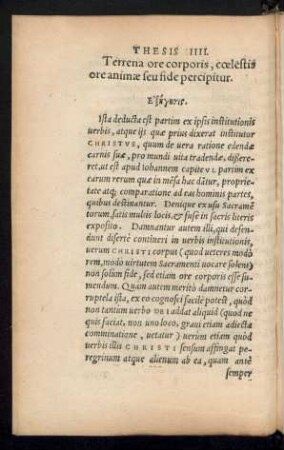 THESIS IIII.
Terrena ore corporis, cœlestis
ore animæ seu fide percipitur.
Ἐξήγησις.
Ista deducta est partim ex ipsis institutionis
uerbis, atque ijs quæ prius dixerat institutor
CHRISTVS, quum de uera ratione edendæ
carnis suæ, pro mundi uita tradendæ, dissere-
ret, ut est apud Iohannem capite VI. partim ex
earum rerum quæ in mēsa hac dātur, proprie-
tate atq; comparatione ad eas hominis partes,
quibus destinantur. Denique ex usu Sacramē
torum, satis multis locis, & fuse in sacris literis
exposito. Damnantur autem illi, qui defen-
dunt disertè contineri in uerbis institutionis,
uerum CHRISTI corpus (quod ueteres modò
rem, modò uirtutem Sacramenti uocare solent)
non solùm fide, sed etiam ore corporis esse su-
mendum. Quàm autem meritò damnetur cor-
ruptela ista, ex eo cognosci facilè potest, quòd
non tantum uerbo DEI addat aliquid (quod ne
quis faciat, non uno loco, graui etiam adiecta
comminatione, uetatur) uerùm etiam quòd
uerbis illis CHRISTI sensum affingat pe-
regrinum atque alienum ab ea, quam antè
semper